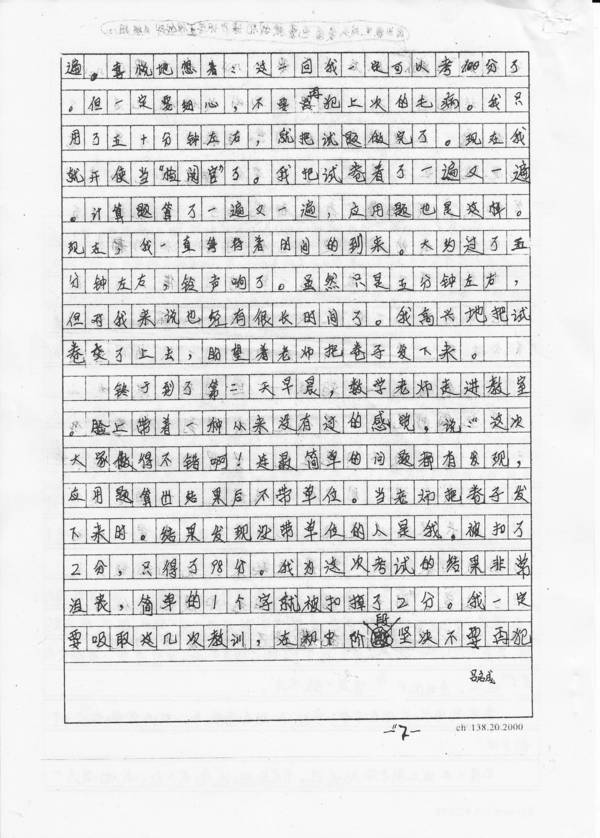 遍。喜悦地想着：这一回我一定可以考100分了
。但一定要细心，不要再犯上次的毛病。我只
用了五十分钟左右，就把试题做完了。现在我
就开使当“检阅官”了。我把试卷看了一遍又一遍
。计算题算了一遍又一遍，应用题也是这样。
现在，我一直等待着时间的到来。大约过了五
分钟左右，铃声响了。虽然只是五分钟左右，
但对我来说也经有很长时间了。我高兴地把试
卷交了上去，盼望着老师把卷子发下来。
终于到了第二天早晨，数学老师走进教室
。脸上带着一种从来没有过的感觉。说：这次
大家做得不错啊！连最简单的问题都有发现，
应用题算出结果后不带单位。当老师把卷子发
下来时。结果发现没带单位的人是我。被扣了
2分，只得了98分。我为这次考试的结果非常
沮丧，简单的1个字就被扣掉了2分。我一定
要吸取这几次教训，在初中阶段坚决不要再犯
-7-
ch 138.20.2000